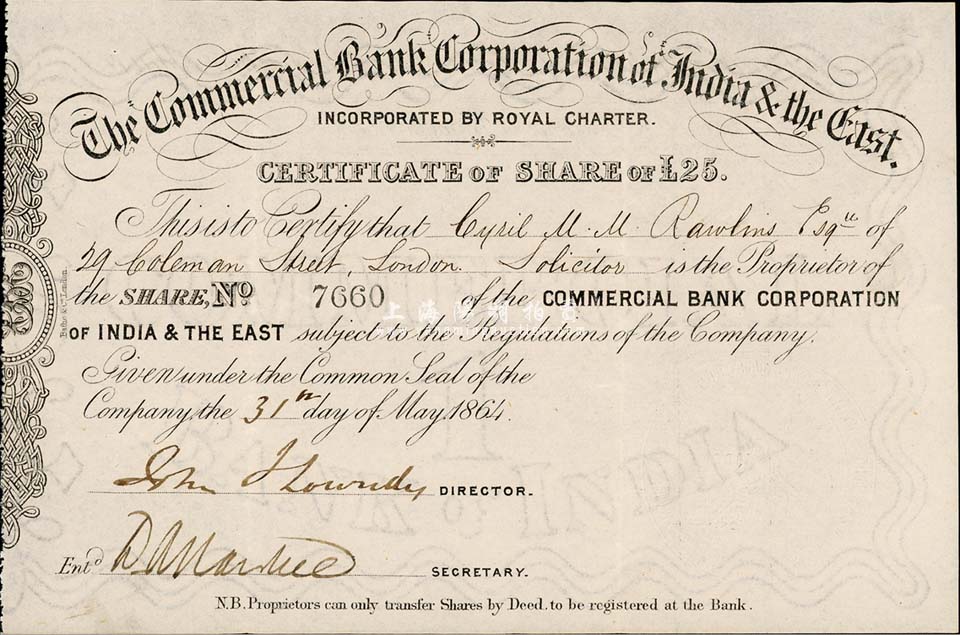 The Commercial Bank Corporation of India & the East.
INCORPORATED BY ROYAL CHARTER.
CERTIFICATE OF SHARE OF £25.
This is to Certify that Cyril M. M. Rawlins Esqre of
29 Coleman Street, London. Solicitor is the Proprietor of
the SHARE, No 7660 of the COMMERCIAL BANK CORPORATION
OF INDIA & THE EAST subject to the Regulations of the Company.
Given under the Common Seal of the
Company, the 31st day of May 1864.
John Lowndes DIRECTOR.
Entd SECRETARY.
N.B. Proprietors can only transfer Shares by Deed, to be registered at the Bank.